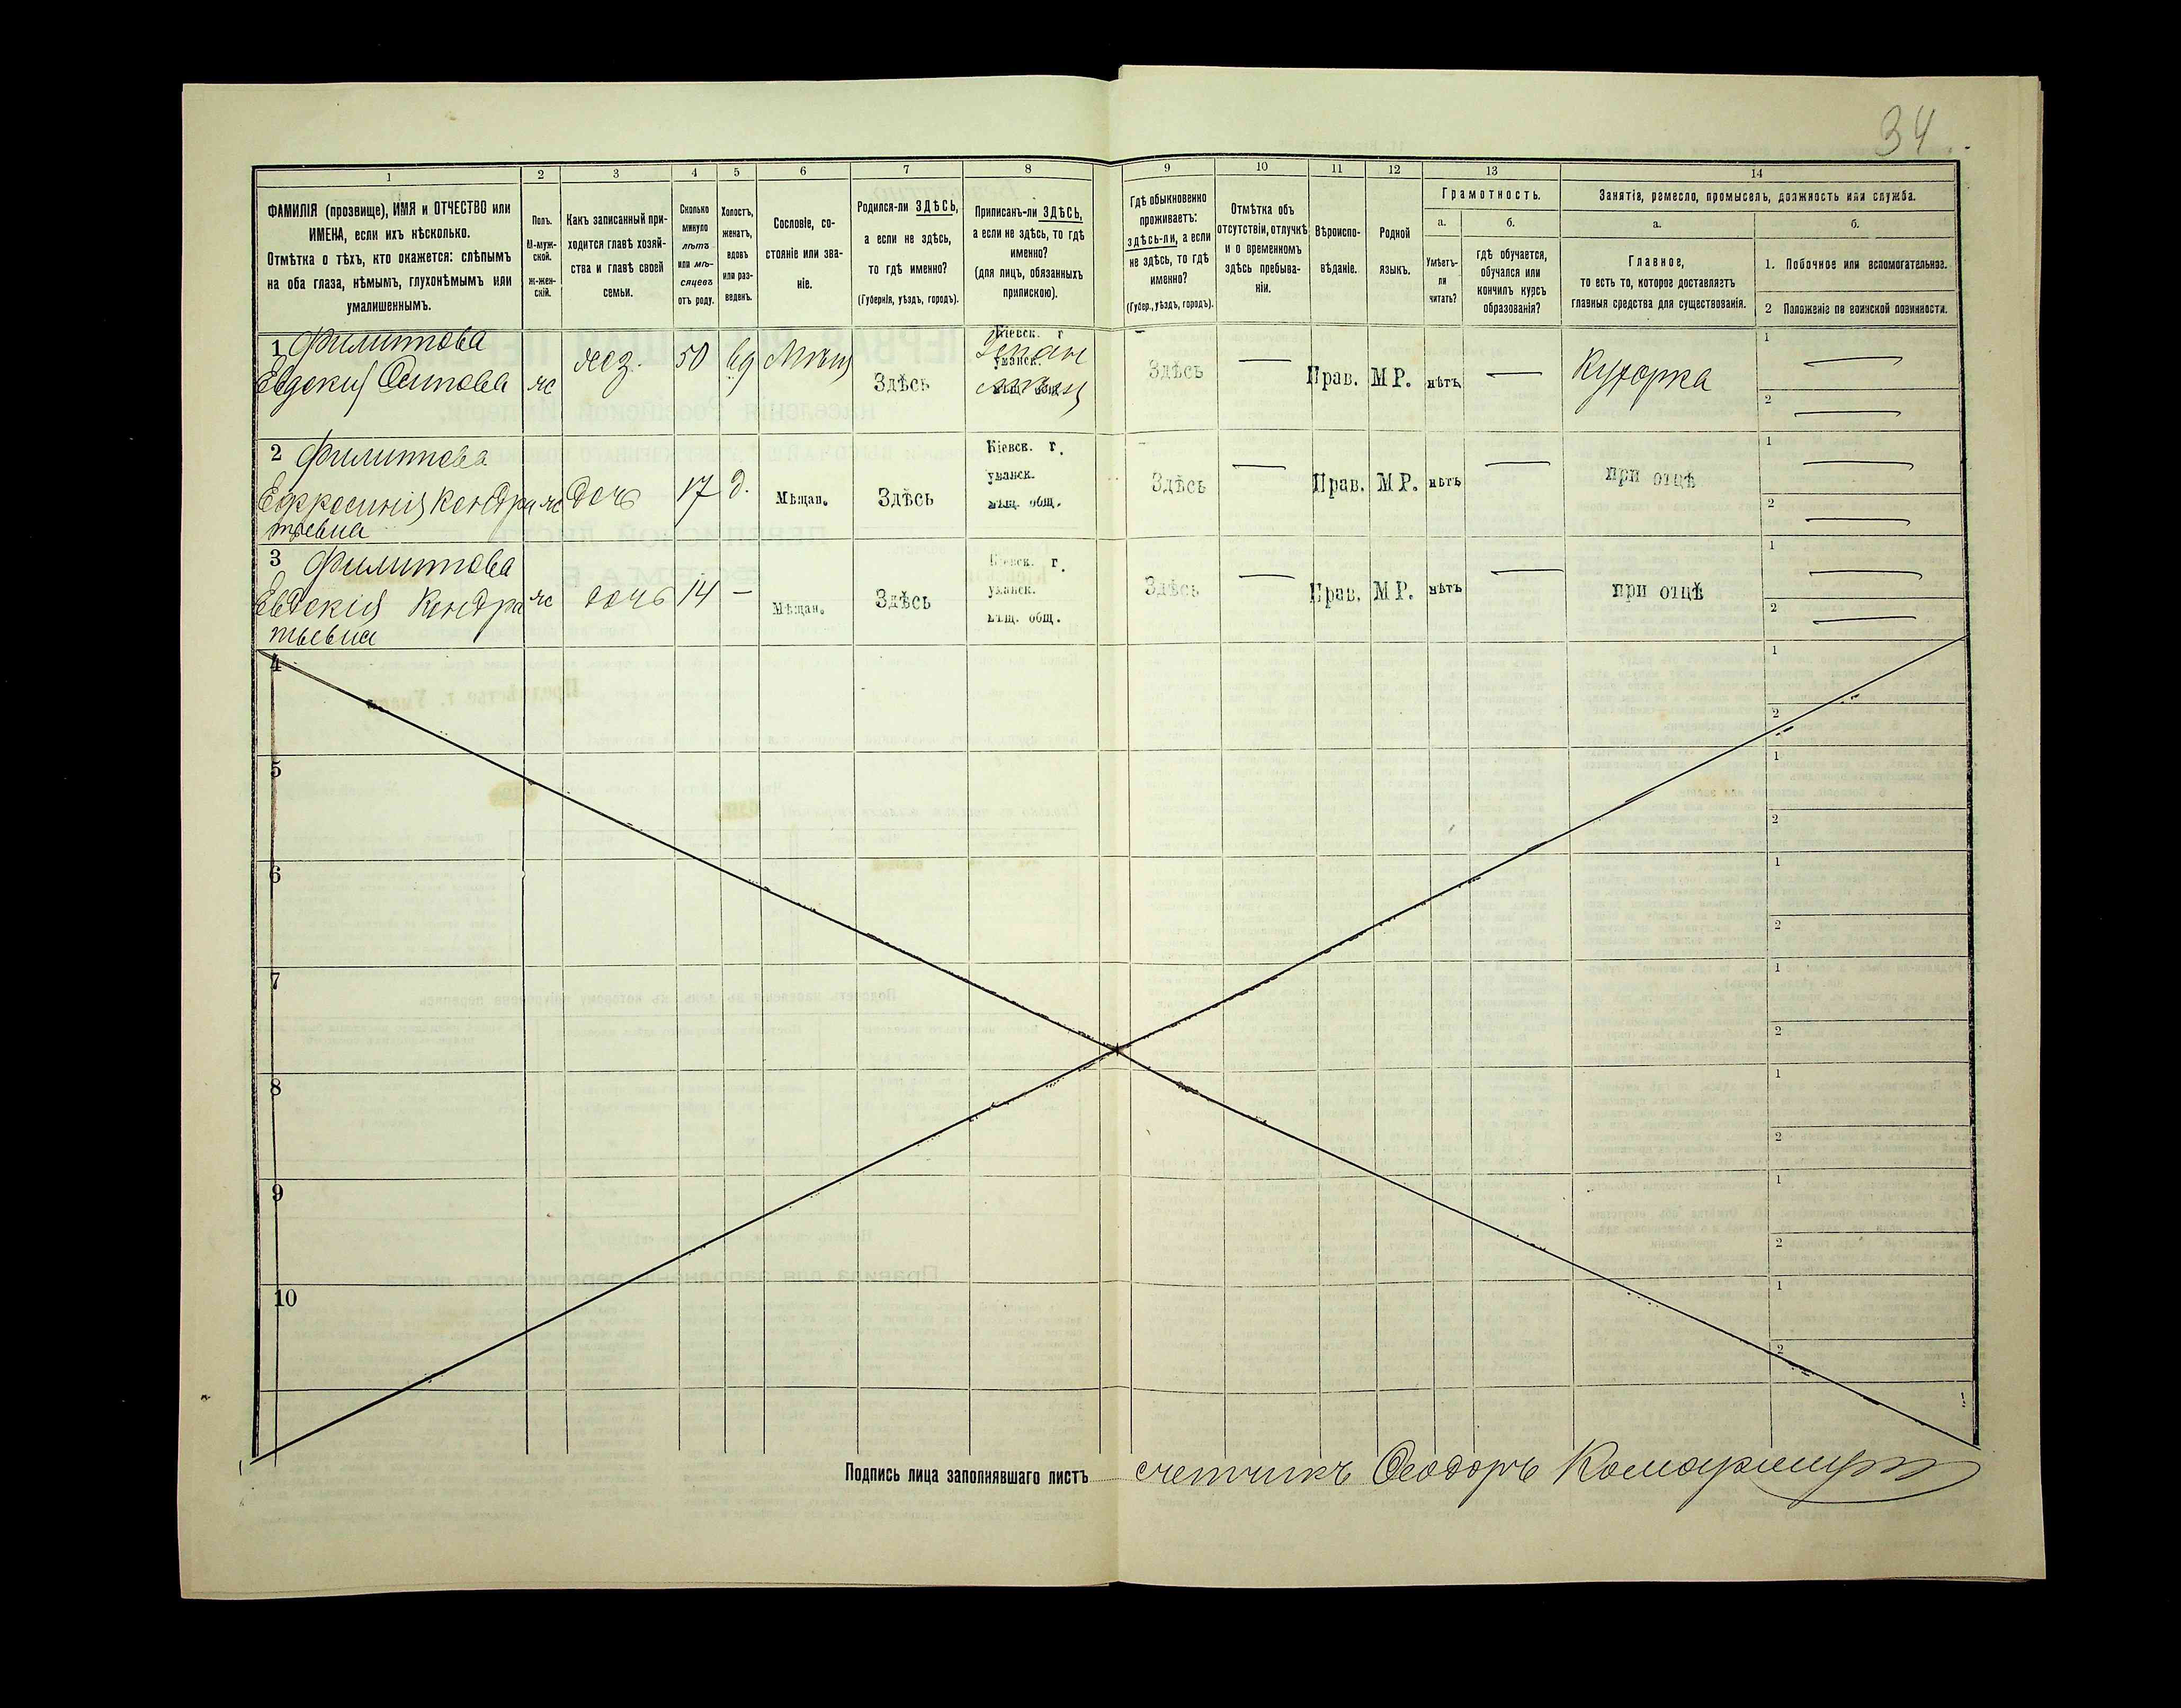 34.
1
2
3
4
5
6
7
8
9
10
11
12
13
14
ФАМИЛІЯ (прозвище), ИМЯ и ОТЧЕСТВО или
ИМЕНА, если ихъ нѣсколько.
Отмѣтка о тѣхъ, кто окажется: слѣпымъ
на оба глаза, нѣмымъ, глухонѣмымъ или
умалишеннымъ.
Полъ.
М-муж-
ской.
Ж-жен-
скій.
Какъ записанный при-
ходится главѣ хозяй-
ства и главѣ своей
семьи.
Сколько
минуло
лѣтъ
или мѣ-
сяцевъ
отъ роду.
Холостъ,
женатъ,
вдовъ
или раз-
веденъ.
Сословіе, со-
стояніе или зва-
ніе.
Родился-ли ЗДѢСЬ,
а если не здѣсь,
то гдѣ именно?
(Губернія, уѣздъ, городъ).
Приписанъ-ли ЗДѢСЬ,
а если не здѣсь, то гдѣ
именно?
(для лицъ, обязанныхъ
припискою).
Гдѣ обыкновенно
проживаетъ:
здѣсь-ли, а если
не здѣсь, то гдѣ
именно?
(Губер., уѣздъ, городъ).
Отмѣтка объ
отсутствіи, отлучкѣ
и о временномъ
здѣсь пребыва-
ніи.
Вѣроиспо-
вѣданіе.
Родной
языкъ.
Грамотность.
а.
б.
Умѣетъ-
ли
читать?
гдѣ обучается,
обучался или
кончилъ курсъ
образованія?
Занятія, ремесло, промыселъ, должность или служба.
а.
б.
Главное,
то есть то, которое доставляетъ
главныя средства для существованія.
1. Побочное или вспомогательное.
2 Положеніе по воинской повинности.
1 Филиппова
Евдокія Осипова ж хоз. 50 вд Мѣщ Здѣсь
Кіевск. г
уманск.
Здѣсь — Прав. МР. нѣтъ — Кухорка
1 —
2 —
2 Филиппова
Ефросинія Кондра ж Дочь 17 д. Мѣщан. Здѣсь
тьевна
Кіевск. г.
уманск.
мѣщ. общ.
Здѣсь — Прав. МР. нѣтъ — при отцѣ
1 —
2 —
3 Филиппова
Евдокія Кондра ж дочь 14 — Мѣщан. Здѣсь
тьевна
Кіевск. г.
уманск.
мѣщ. общ.
Здѣсь — Прав. МР. нѣтъ — при отцѣ
1 —
2 —
4
1
2
5
1
2
6
1
2
7
1
2
8
1
2
9
1
2
10
1
2
Подпись лица заполнявшаго листъ счетчикъ Ѳеодоръ